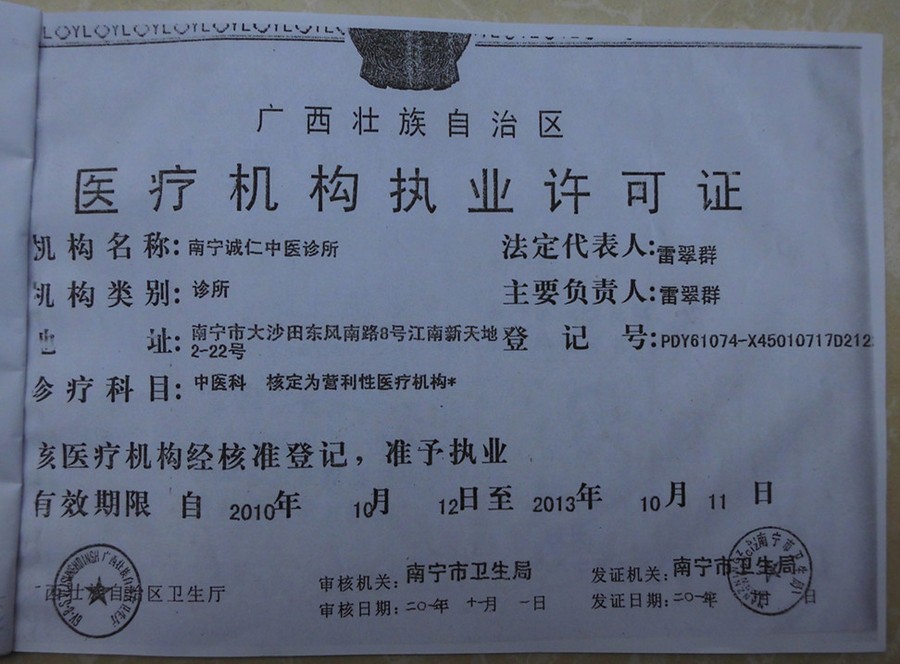 广西壮族自治区
医疗机构执业许可证
机构名称：南宁诚仁中医诊所 法定代表人：雷翠群
机构类别：诊所 主要负责人：雷翠群
址：南宁市大沙田东风南路8号江南新天地2-22号 登记号：PDY61074-X45010717D212
诊疗科目：中医科 核定为营利性医疗机构*
该医疗机构经核准登记，准予执业
有效期限 自 2010年 10月 12日至 2013年 10月 11日
西壮族自治区卫生厅 审核机关：南宁市卫生局 发证机关：南宁市卫生局
审核日期：二〇一年 十一月 一日 发证日期：二〇一年 月 日